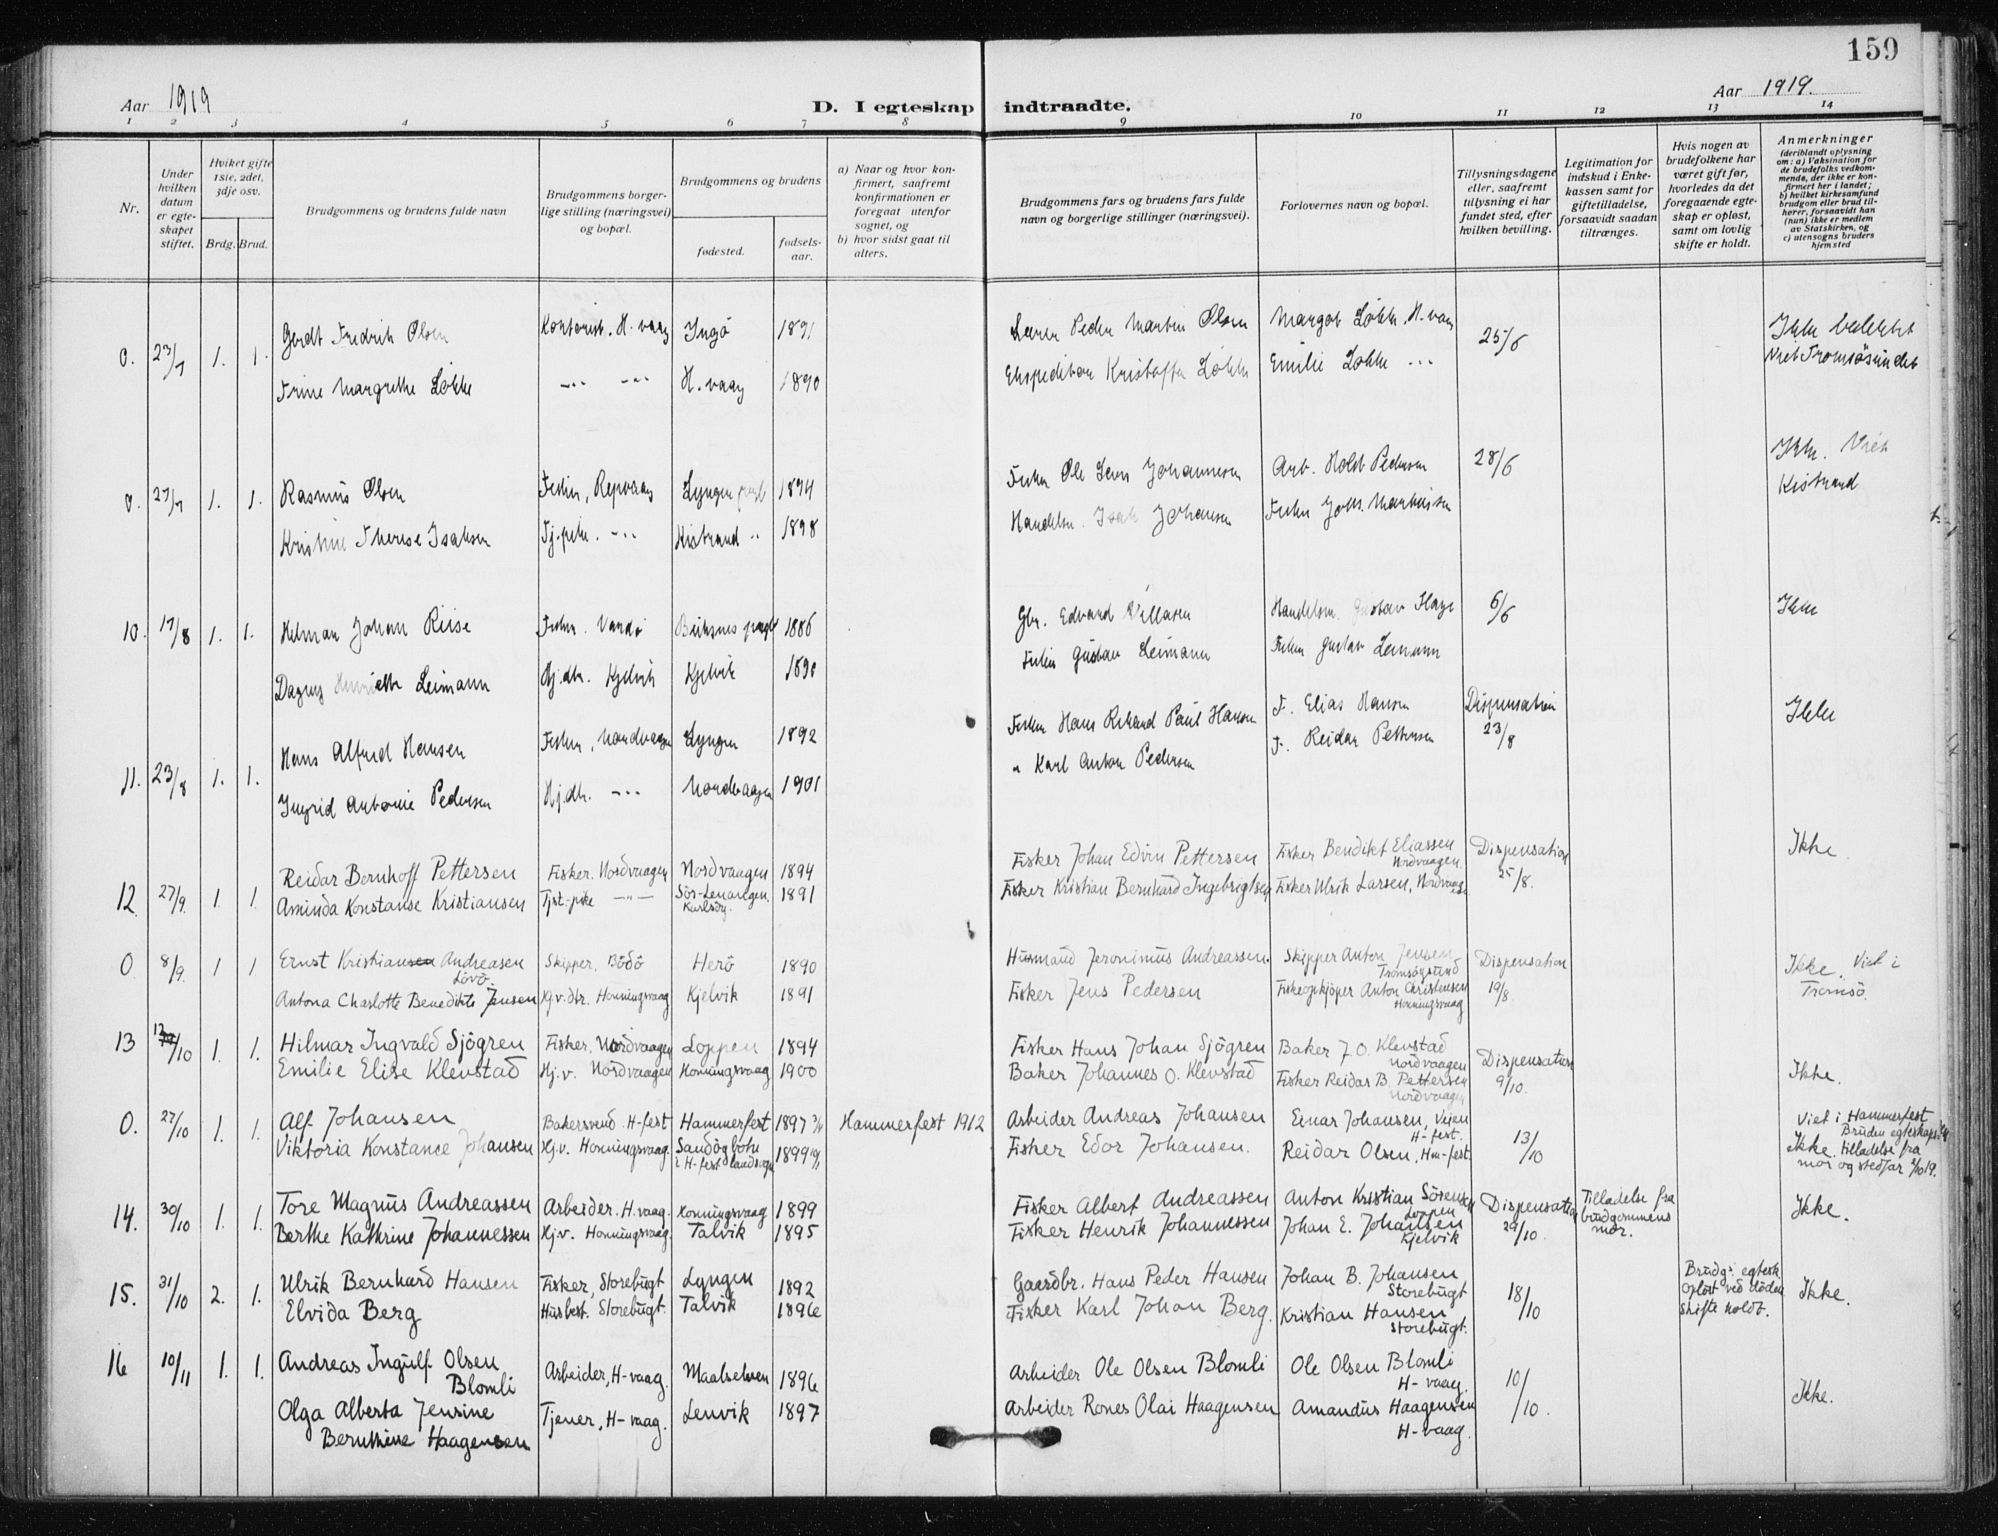 159
Aar 1919
D. I egteskap indtraadte.
Aar 1919.
1 2 3 4 5 6 7 8 9 10 11 12 13 14
Nr.
Under hvilken datum er egteskapet stiftet.
Hviket gifte 1ste, 2det, 3dje osv.
Brdg. Brud.
Brudgommens og brudens fulde navn
Brudgommens borgerlige stilling (næringsvei) og bopæl.
Brudgommens og brudens
fødested.
fødselsaar.
a) Naar og hvor konfirmert, saafremt konfirmationen er foregaat utenfor sognet, og
b) hvor sidst gaat til alters.
Brudgommens fars og brudens fars fulde navn og borgerlige stillinger (næringsvei).
Forlovernes navn og bopæl.
Tillysningsdagene eller, saafremt tillysning ei har fundet sted, efter hvilken bevilling.
Legitimation for indskud i Enkekassen samt for giftetilladelse, forsaavidt saadan tiltrænges.
Hvis nogen av brudefolkene har været gift før, hvorledes da det foregaaende egteskap er opløst, samt om lovlig skifte er holdt.
Anmerkninger
(deriblandt oplysning om: a) Vaksination for de brudefolks vedkommende, der ikke er konfirmert her i landet; b) hvilket kirkesamfund brudgom eller brud tilhører, forsaavidt han (hun) ikke er medlem av Statskirken, og c) utensogns bruders hjemsted
0. 23/7 1. 1. Gerdt Fredrik Olsen Kontorist. H.vaag Ingö 1891 Lærer Peder Martin Olsen Margot Løkke, H.vaag 25/6 Ikke beslektet
Trine Margrethe Løkke -"- -"- H.vaag 1890 Ekspeditør Kristoffer Løkke Emilie Løkke -"- Viet Tromsösundet
0. 27/7 1. 1. Rasmus Olsen Fisker, Repvaag Lyngen 1894 Fisker Ole Johannesen Arb. Holst Pedersen 28/6 Ikke. Viet
Kristine Therese Isaksen Tj.pike. -"- Kistrand " 1898 Handelsm. Isak Johansen Fisker Johs. Martinssen Kistrand
10. 17/8 1. 1. Hilmar Johan Riise Fisker. Vardö 1886 Gbr. Edvard Handelsm. Gustav 6/6 Ikke
Dagny Henriette Leimann Hj.dtr. Kjelvik Kjelvik 1890 Fisker Gustav Leimann Fisker Gustav Leimann
11. 23/8 1. 1. Hans Alfred Hansen Fisker, Nordvaagen Lyngen 1892 Fisker Hans Rikard Paul Hansen F. Elias Hansen Dispensation 23/8 Ikke
Ingrid Antonie Pedersen Hj.dtr. -"- Nordvaagen 1901 " Karl Anton Pedersen F. Reidar Pettersen
12. 27/9. 1. 1. Reidar Bernhoff Pettersen Fisker. Nordvaagen Nordvaagen 1894 Fisker Johan Edvin Pettersen Fisker Bendikt Eliassen Nordvaagen. Dispensation 25/8. Ikke.
Aminda Konstanse Kristiansen Tjst-pike -"- Sör-Lenangen. Karlsöy. 1891 Fisker Kristian Bernhard Ingebrigtsen Fisker Ulrik Larsen, Nordvaagen
0. 8/9. 1 1 Ernst Kristiansen Andreasen Lövö. Skipper. Bödö Herö 1890 Husmand Jeronimus Andreassen. Skipper Anton Jensen Tromsöysund Dispensation 19/8. Ikke. Viet i Tromsö.
Antona Charlotte Benedikte Jensen Hj.v.dtr. Honningsvaag Kjelvik 1891 Fisker Jens Pedersen Fiskeopkjöper Anton Christensen Honningsvaag
13 12/10 1. 1. Hilmar Ingvald Sjögren Fisker. Nordvaagen Loppen 1894 Fisker Hans Johan Sjögren Baker J O. Klevstad Nordvaagen Dispensation 9/10. Ikke.
Emilie Elise Klevstad Hj.v. Nordvaagen Honningsvaag 1900 Baker Johannes O. Klevstad Fisker Reidar B. Pettersen Nordvaagen
0. 27/10 1. 1. Alf Johansen Bakersvend H-fest Hammerfest 1897 Hammerfest 1912 Arbeider Andreas Johansen Einar Johansen, Veien H-fest. 13/10 Viet i Hammerfest
Viktoria Konstance Johansen Hj.v. Honningsvaag. Sandögbotn i H-fest landsogn 1899 Fisker Edor Johansen. Reidar Olsen, Hm-fest. Ikke. Bruden egteskaps tilladelse fra mor og stedfar 2/10 19.
14. 30/10 1. 1. Tore Magnus Andreassen Arbeider. H.vaag. Honningsvaag 1899 Fisker Albert Andreassen Anton Kristian Sörensen Loppen Dispensation 29/10. Tilladelse fra brudgommens mor. Ikke.
Berthe Kathrine Johannessen Hj.v. Honningsvaag. Talvik 1895 Fisker Henrik Johannessen Johan E. Johansen Kjelvik
15. 31/10 2. 1. Ulrik Bernhard Hansen Fisker, Storebugt Lyngen 1892 Gaardbr. Hans Peder Hansen Johan B. Johansen Storebugt 18/10 Brudg.s egtesk. oplöst ved döden Skifte holdt. Ikke.
Elvida Berg Husbest. Storebugt. Talvik 1896 Fisker Karl Johan Berg. Kristian Hansen Storebugt.
16 10/11 1. 1. Andreas Ingulf Olsen Blomli Arbeider, H-vaag. Maalselven 1896 Arbeider Ole Olsen Blomli Ole Olsen Blomli H-vaag. 10/10. Ikke.
Olga Alberta Jensine Bernthine Haagensen Tjener, H-vaag. Lenvik 1897 Arbeider Rones Olai Haagensen Amandus Haagensen H-vaag.